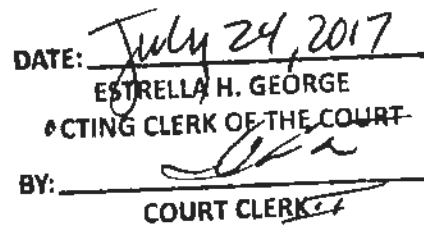 DATE: July 24, 2017
ESTRELLA H. GEORGE
ACTING CLERK OF THE COURT
BY:
COURT CLERK